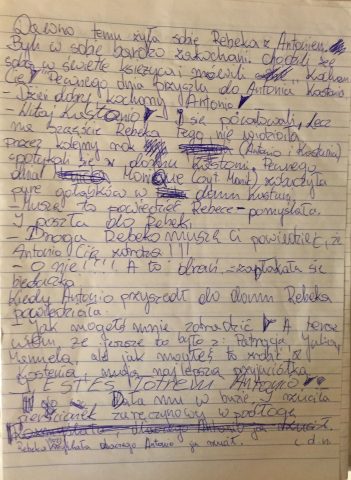 Dawno temu żyła sobie Rebeka z Antoniem.
Byli w sobie bardzo zakochani. chodzili ze
sobą w świetle księżyca i mówili "Kocham
Cię". Pewnego dnia przyszła do Antonia Kostania
- Dzień dobry kochamy Antonio
- Witaj Kostanio - i się pocałowali, lecz
na szczęście Rebeka tego nie widziała
przez kolejny rok (Antonio i Kostania)
spotykali się w domu Kostani. Pewnego
dnia Monique (czyt Monik) zobaczyła
parę gołąbków w domu Kostani
- Muszę to powiedzieć Rebece - pomyślała.
I poszła do Rebeki
- Droga Rebeko muszę Ci powiedzieć, że
Antonio Cię zdradza!!!
- O nie!!!! A to drań - zapłakała się
biedaczka
Kiedy Antonio przyszedł do domu Rebeka
powiedziała.
- Jak mogłeś mnie zdradzić A teraz
wiem że jeszcze to było z: Patrycją, Julią,
Manuelą, ale jak mogłeś to zrobić z
Kostanią, moją najlepszą przyjaciółką
JESTEŚ Antonio
Dała mu w buzię, i rzuciła
pierścionek zaręczynowy w podłogę
Rebeka dlaczego Antonio ją rzucił. c.d.n.